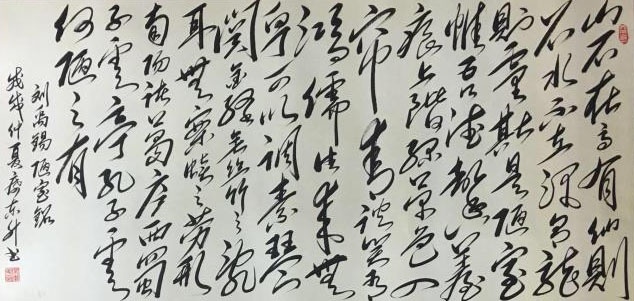 山不在高有仙则
名水不在深有龙
则灵斯是陋室
惟吾德馨苔
痕上阶绿草色入
帘青谈笑有
鸿儒往来无
白丁可以调素琴
阅金经无丝竹之乱
耳无案牍之劳形
南阳诸葛庐西蜀
子云亭孔子云
何陋之有
刘禹锡陋室铭
戊戌仲夏东升书